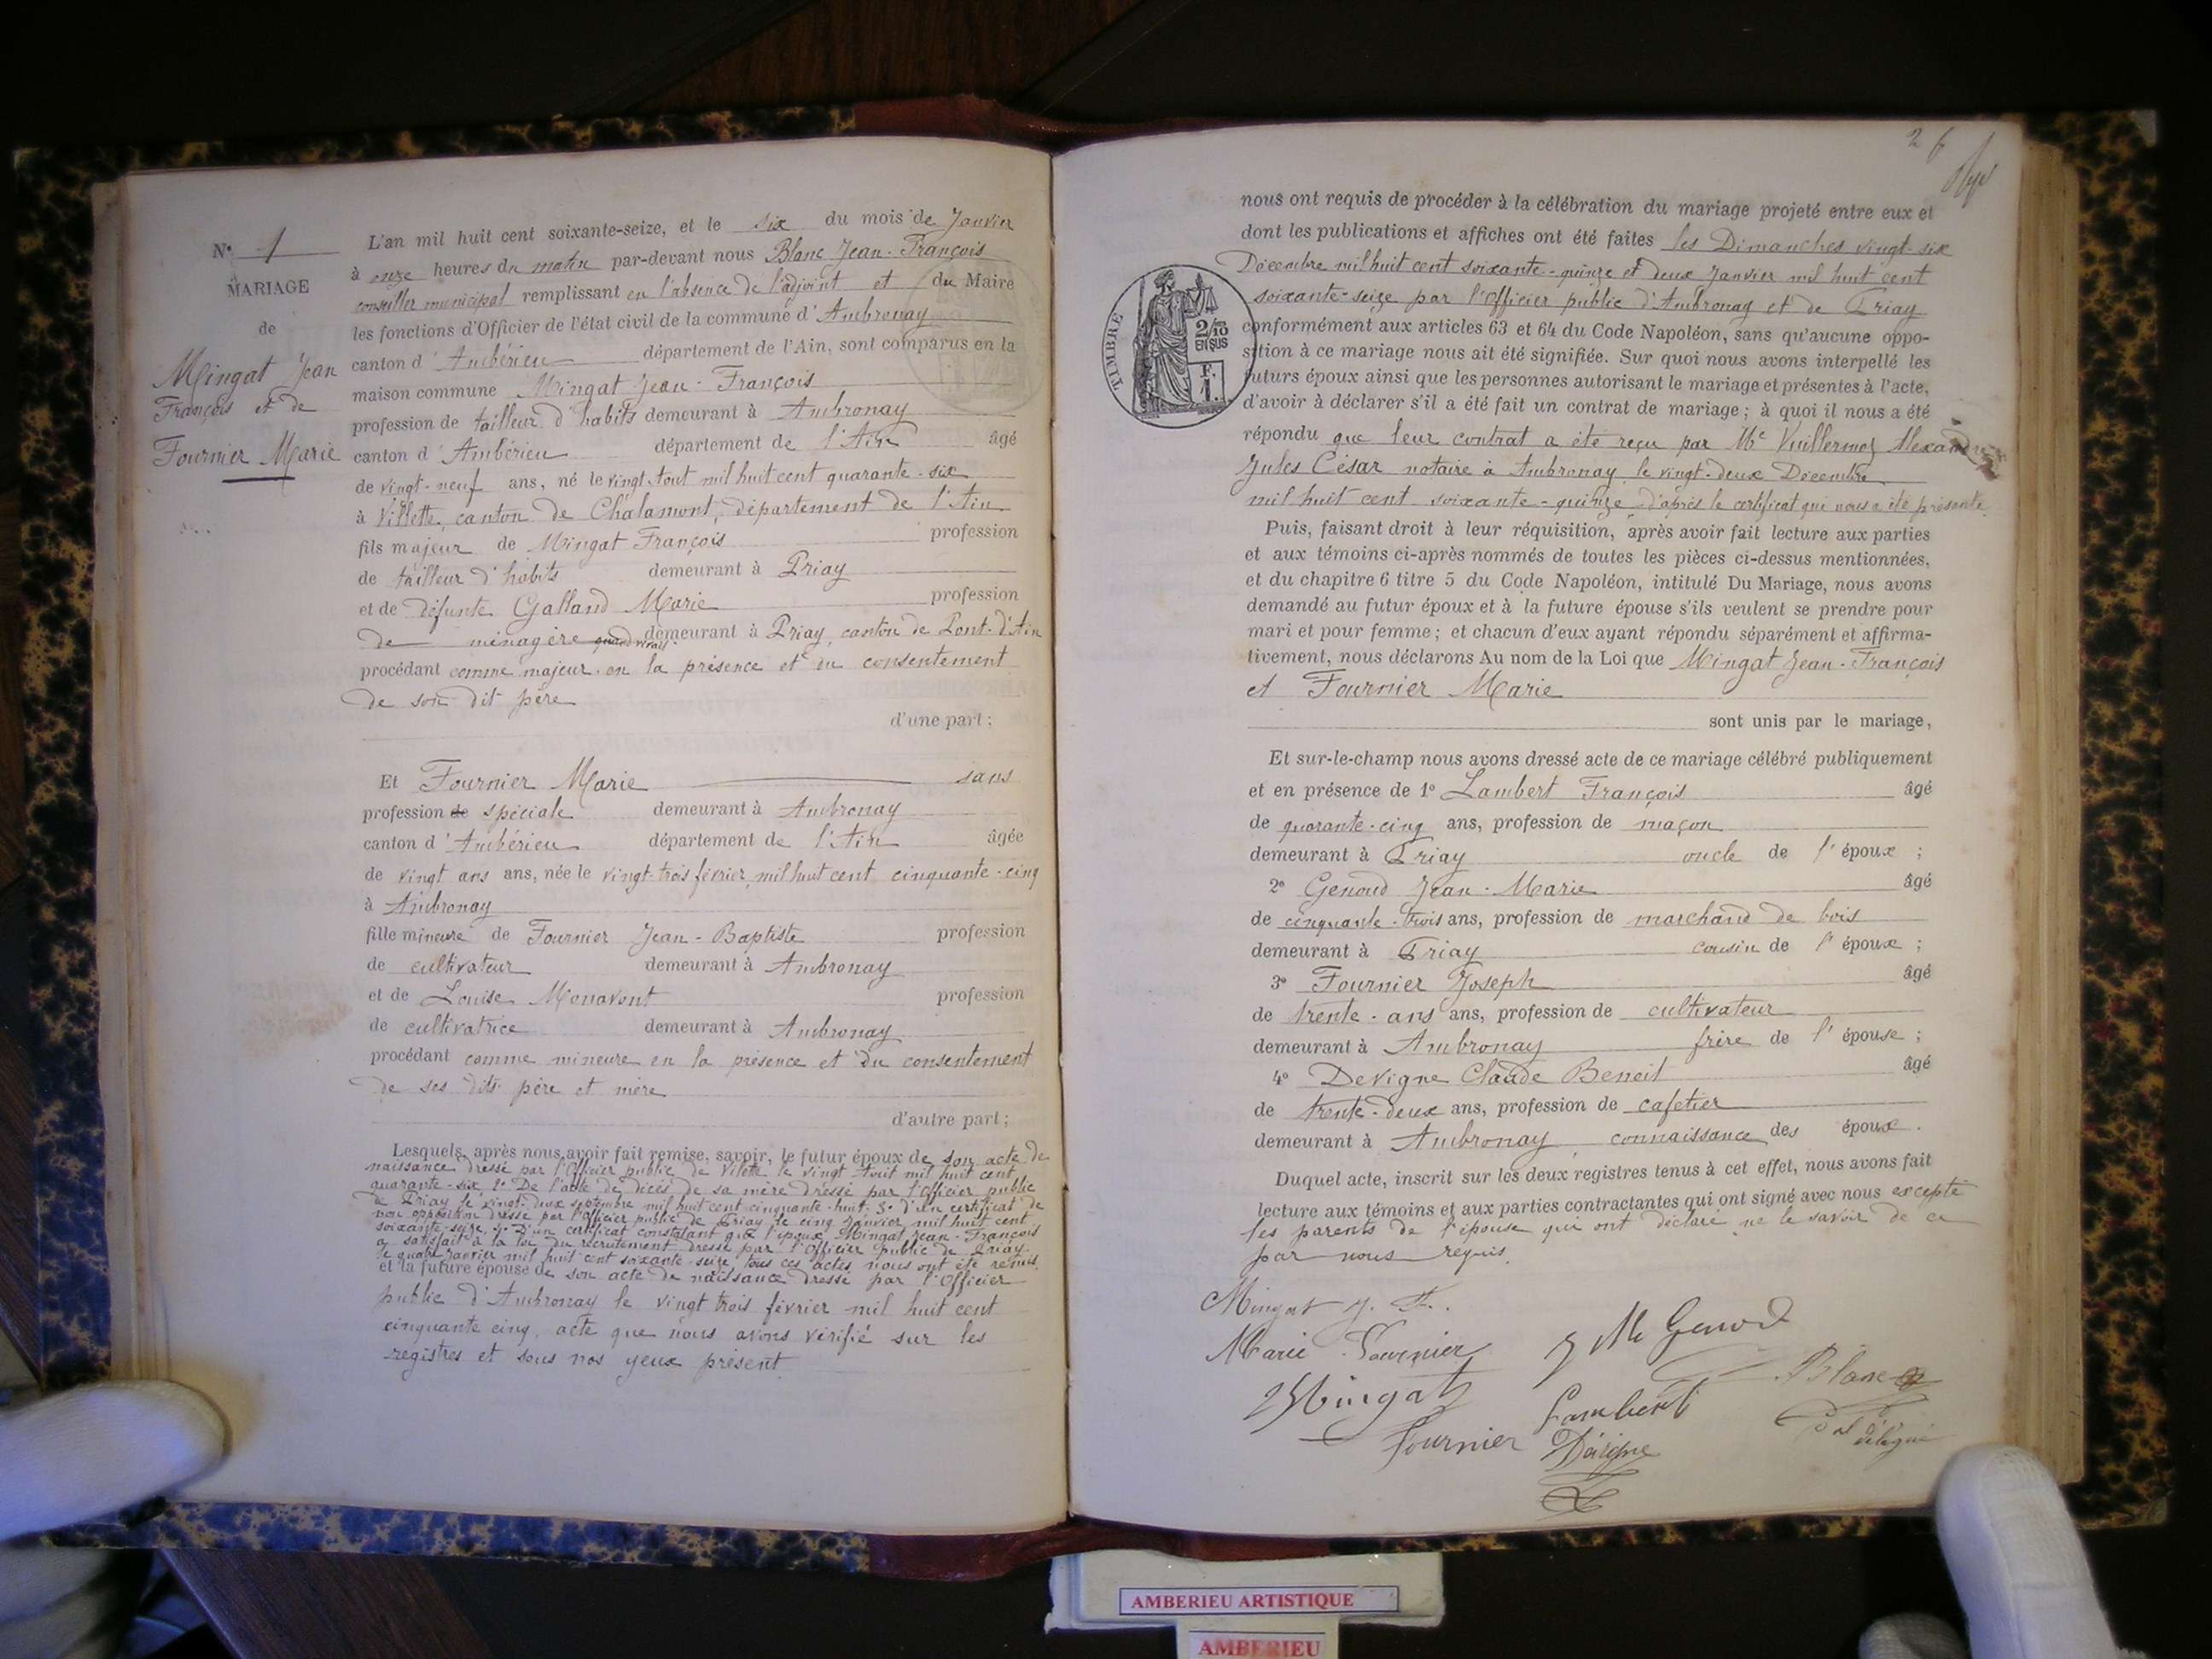 N° 1
MARIAGE
de
Mingat Jean
François et de
Fournier Marie
L'an mil huit cent soixante-seize, et le six du mois de Janvier
à onze heures du matin par-devant nous Blanc Jean-François
conseiller municipal remplissant en l'absence de l'adjoint et du Maire
les fonctions d'Officier de l'état civil de la commune d'Ambronay
canton d'Ambérieu département de l'Ain, sont comparus en la
maison commune Mingat Jean-François
profession de tailleur d'habits demeurant à Ambronay
canton d'Ambérieu département de l'Ain âgé
de vingt-neuf ans, né le vingt Aout mil huit cent quarante-six
à Villette, canton de Chalamont, département de l'Ain
fils majeur de Mingat François profession
de tailleur d'habits demeurant à Priay
et de défunte Galland Marie profession
de ménagère quand vivait demeurant à Priay, canton de Pont-d'Ain
procédant comme majeur en la présence et du consentement
de son dit père
d'une part ;
Et Fournier Marie sans
profession de spéciale demeurant à Ambronay
canton d'Ambérieu département de l'Ain âgée
de vingt ans ans, née le vingt-trois février mil huit cent cinquante-cinq
à Ambronay
fille mineure de Fournier Jean-Baptiste profession
de cultivateur demeurant à Ambronay
et de Louise Monavont profession
de cultivatrice demeurant à Ambronay
procédant comme mineure en la présence et du consentement
de ses dits père et mère
d'autre part ;
Lesquels, après nous avoir fait remise, savoir, le futur époux de son acte de
naissance dressé par l'Officier public de Vilette le vingt Aout mil huit cent
quarante-six 2° De l'acte de décès de sa mère dressé par l'Officier public
de Priay le vingt-deux septembre mil huit cent cinquante-huit. 3° d'un certificat de
non opposition dressé par l'Officier public de Priay le cinq Janvier mil huit cent
soixante-seize, 4° D'un certificat constatant que l'époux Mingat Jean-François
a satisfait à la loi du recrutement dressé par l'Officier public de Priay
le quatre Janvier mil huit cent soixante-seize, tous ces actes nous ont été remis
et la future épouse de son acte de naissance dressé par l'Officier
public d'Ambronay le vingt trois février mil huit cent
cinquante cinq, acte que nous avons vérifié sur les
registres et sous nos yeux présent
26
nous ont requis de procéder à la célébration du mariage projeté entre eux et
dont les publications et affiches ont été faites les Dimanches vingt-six
Décembre mil huit cent soixante-quinze et deux Janvier mil huit cent
soixante-seize par l'Officier public d'Ambronay et de Priay
conformément aux articles 63 et 64 du Code Napoléon, sans qu'aucune oppo-
sition à ce mariage nous ait été signifiée. Sur quoi nous avons interpellé les
futurs époux ainsi que les personnes autorisant le mariage et présentes à l'acte,
d'avoir à déclarer s'il a été fait un contrat de mariage ; à quoi il nous a été
répondu que leur contrat a été reçu par Me Vuillermoz Alexandre
Jules César notaire à Ambronay le vingt-deux Décembre
mil huit cent soixante-quinze d'après le certificat qui nous a été présenté
TIMBRE
2/10 EN SUS
F. 1.
Puis, faisant droit à leur réquisition, après avoir fait lecture aux parties
et aux témoins ci-après nommés de toutes les pièces ci-dessus mentionnées,
et du chapitre 6 titre 5 du Code Napoléon, intitulé Du Mariage, nous avons
demandé au futur époux et à la future épouse s'ils veulent se prendre pour
mari et pour femme ; et chacun d'eux ayant répondu séparément et affirma-
tivement, nous déclarons Au nom de la Loi que Mingat Jean-François
et Fournier Marie
sont unis par le mariage,
Et sur-le-champ nous avons dressé acte de ce mariage célébré publiquement
et en présence de 1° Lambert François âgé
de quarante-cinq ans, profession de maçon
demeurant à Priay oncle de l'époux ;
2° Genoud Jean-Marie âgé
de cinquante-trois ans, profession de marchand de bois
demeurant à Priay cousin de l'époux ;
3° Fournier Joseph âgé
de trente-ans ans, profession de cultivateur
demeurant à Ambronay frère de l'épouse ;
4° Devigne Claude Benoit âgé
de trente-deux ans, profession de cafetier
demeurant à Ambronay connaissance des époux.
Duquel acte, inscrit sur les deux registres tenus à cet effet, nous avons fait
lecture aux témoins et aux parties contractantes qui ont signé avec nous excepté
les parents de l'épouse qui ont déclaré ne le savoir de ce
par nous requis.
Mingat J. F.
Marie Fournier
J M Genod
Mingat
Lambert
Blanc
Fournier
Devigne
délégué
AMBERIEU ARTISTIQUE
AMBERIEU